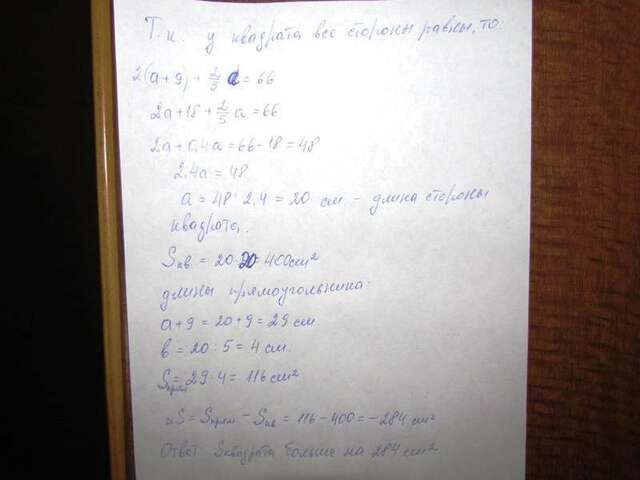 Т.к у квадрата все стороны равны, то:
2(a+9) + 2/5 a = 66
2a+18 + 2/5 a = 66
2a + 0,4a = 66-18 = 48
2,4a = 48
a = 48 : 2,4 = 20 см - длина стороны
квадрата.
Sкв. = 20·20 = 400см²
длины прямоугольника:
a+9 = 20+9 = 29 см
в = 20 : 5 = 4 см.
Sпрям = 29·4 = 116 см²
ΔS = Sпрям - Sкв = 116 - 400 = -284 см²
Ответ Sквадрата больше на 284 см²